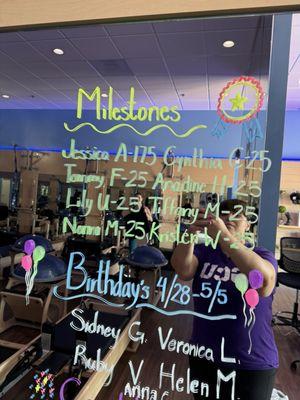 Milestones
Jessica A-175 Cynthia G-25
Tammy F-25 Anadine H-25
Lily U-25 Tiffany M-25
Norma M-25 Kristen W-25
Birthday's 4/28-5/5
Sidney G. Veronica L
Ruby V Helen M
Anna